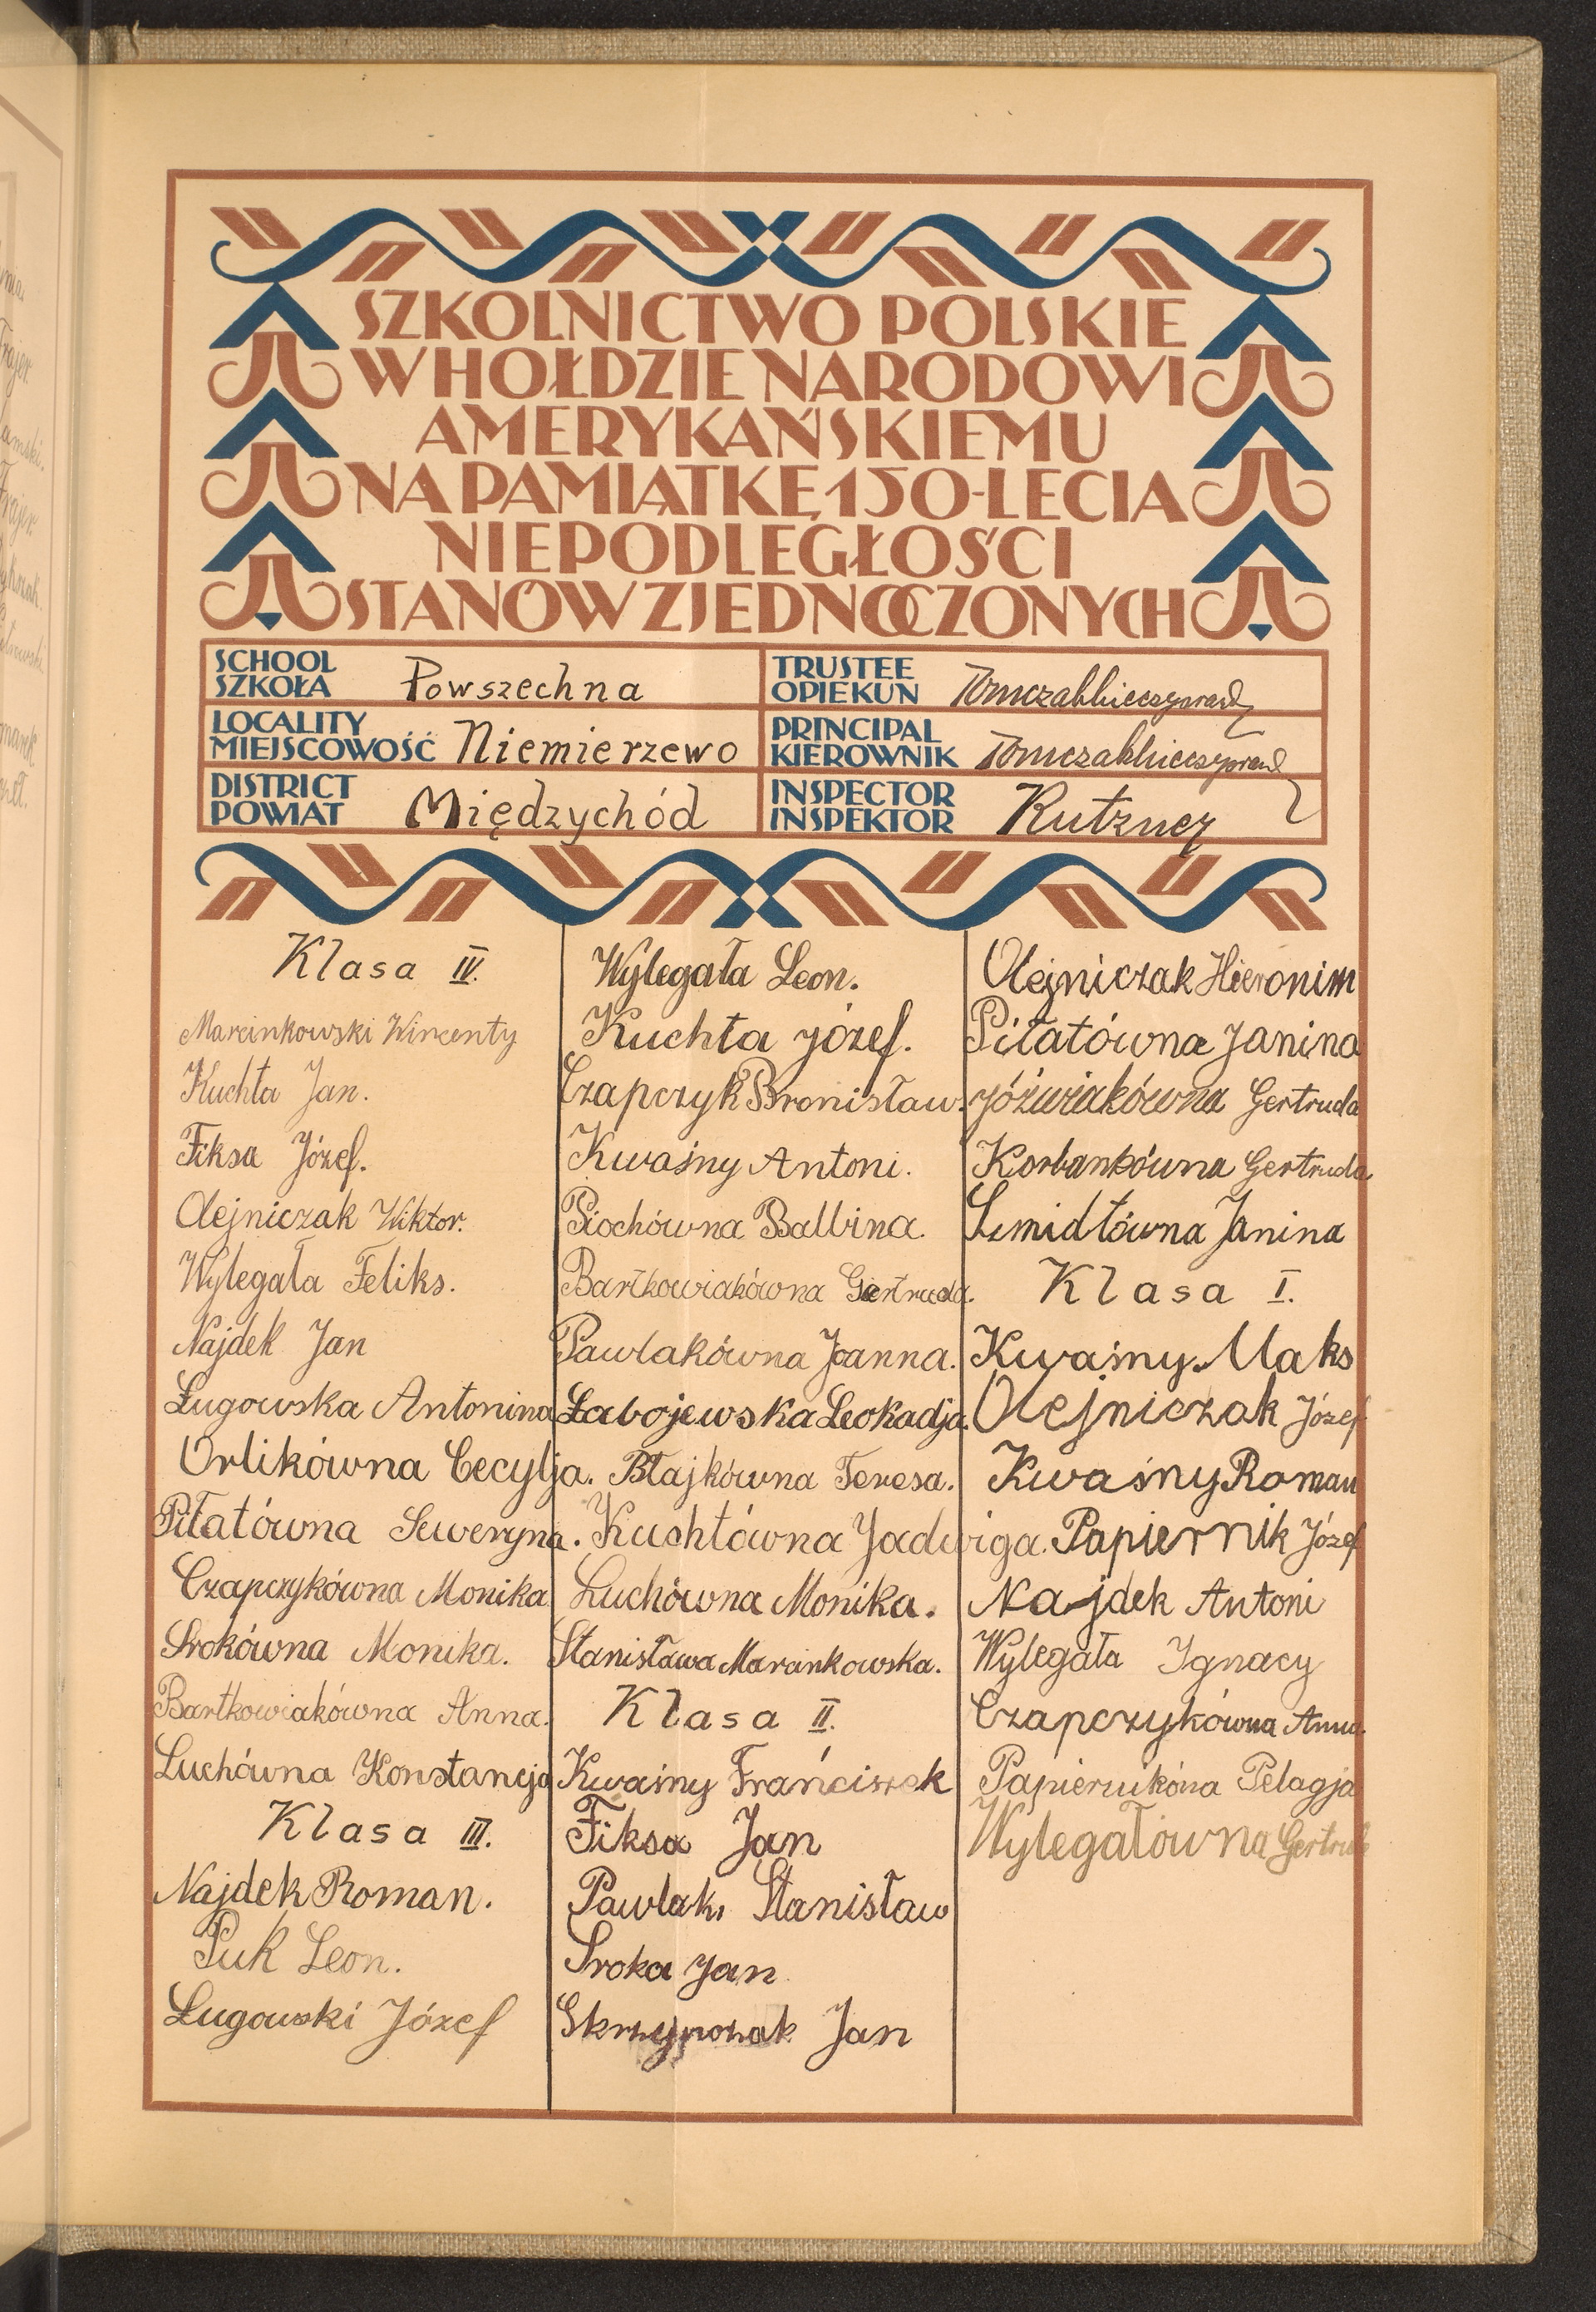 SZKOLNICTWO POLSKIE
W HOŁDZIE NARODOWI
AMERYKAŃSKIEMU
NA PAMIĄTKĘ 150-LECIA
NIEPODLEGŁOŚCI
STANÓW ZJEDNOCZONYCH
SCHOOL
SZKOŁA Powszechna
TRUSTEE
OPIEKUN
LOCALITY
MIEJSCOWOŚĆ Niemierzewo
PRINCIPAL
KIEROWNIK
DISTRICT
POWIAT Międzychód
INSPECTOR
INSPEKTOR Kutzner
Klasa IV.
Marcinkowski Wincenty
Kuchta Jan.
Fiksa Józef.
Olejniczak Wiktor.
Wylegała Feliks.
Najdek Jan
Ługowska Antonina
Orlikówna Cecylja.
Piłatówna Seweryna.
Czapczykówna Monika
Srokówna Monika.
Bartkowiakówna Anna.
Luchówna Konstancja
Klasa III.
Najdek Roman.
Puk Leon.
Ługowski Józef
Wylegała Leon.
Kuchta Józef.
Czapczyk Bronisław.
Kwaśny Antoni.
Piochówna Balbina.
Bartkowiakówna Gertruda.
Pawlakówna Joanna.
Łabojewska Leokadja.
Błajkówna Teresa.
Kuchtówna Jadwiga.
Luchówna Monika.
Stanisława Marcinkowska.
Klasa II.
Kwaśny Frańciszek
Fiksa Jan
Pawlak, Stanisław
Sroka Jan
Jan
Olejniczak Hieronim
Piłatówna Janina
Jóźwiakówna Gertruda
Korbankówna Gertruda
Szmidtówna Janina
Klasa I.
Kwaśny Maks
Olejniczak Józef
Kwaśny Roman
Papiernik Józef
Najdek Antoni
Wylegała Ignacy
Czapczykówna Anna
Papiernikóna Pelagja
Wylegałówna Gertruda